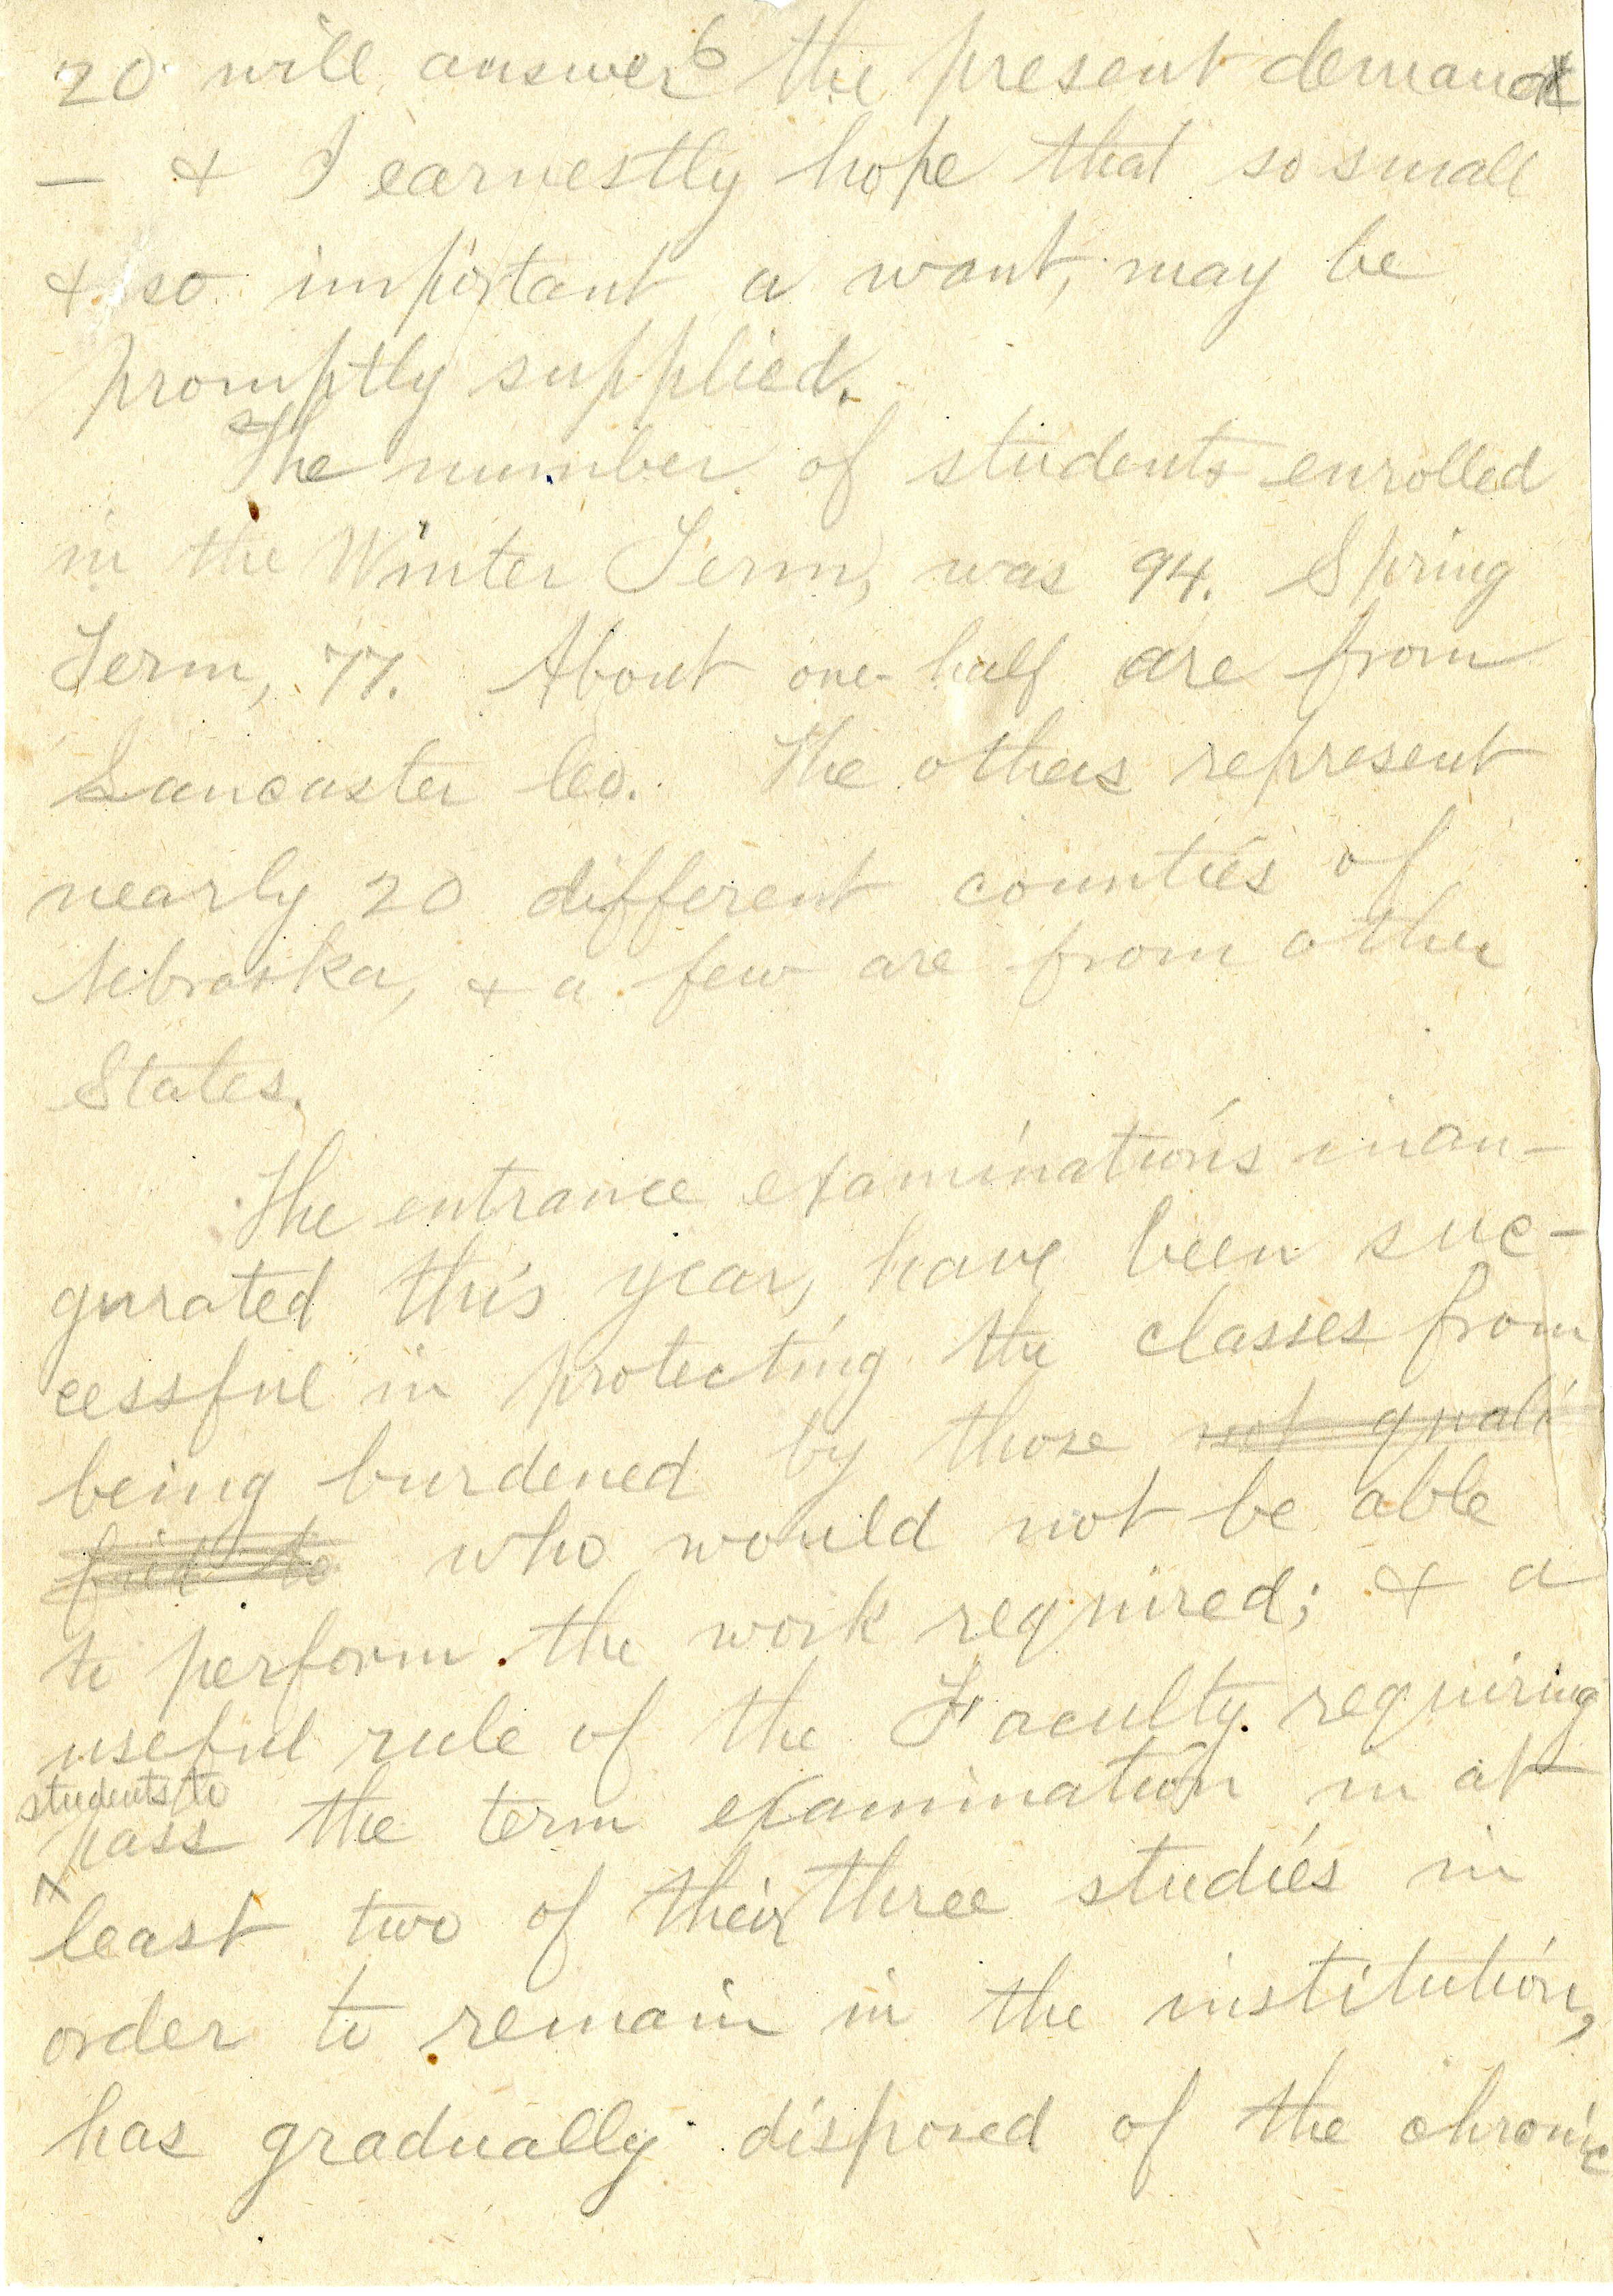 6
20 will answer the present demand
— & I earnestly hope that so small
& so important a want, may be
promptly supplied.
The number of students enrolled
in the Winter Term, was 94. Spring
Term, 77. About one-half are from
Lancaster Co. The others represent
nearly 20 different counties of
Nebraska, & a few are from other
States.
The entrance examinations inau-
gurated this year, have been suc-
cessful in protecting the classes from
being burdened by those not quali
fied to who would not be able
to perform the work required; & a
useful rule of the Faculty requiring
students to
pass the term examination in at
least two of their three studies in
order to remain in the institution,
has gradually disposed of the chronic